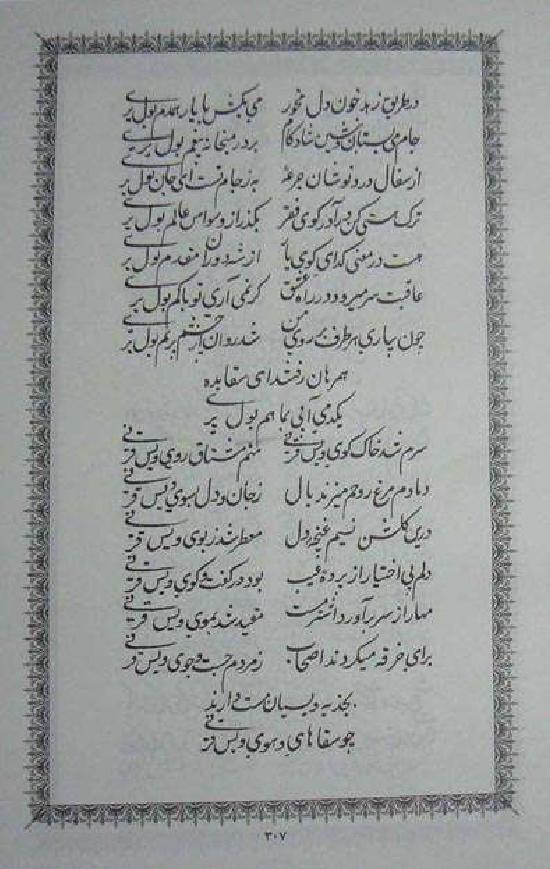 در طریق زهد خون دل مخور می بکش با یار همدم بول پری
جام می بستان بنوشین شادکام بر در میخانه بیغم بول پری
از سفال درد نوشان جرعه به ز جام تست ای جان بول پری
ترک مستی کن در آ در کوی فقر بگذر از وسواس عالم بول پری
هست در معنی گدای کوی یار از شه و مقدم بول پری
عاقبت سر میرود در راه عشق گر نمی آری تو باکم بول پری
چون بیاری هر طرف بر روی من شد روان از چشم پر نم بول پری
همرهان رفتند ای سقا بده
یکدمی آبی بما هم بول پری
سرم شد خاک کوی ویس قرنی منم مشتاق روی ویس قرنی
دمادم مرغ روحم میزند بال ز جان و دل بسوی ویس قرنی
درین گلشن نسیم غنچه دل معطر شد ز بوی ویس قرنی
دلم بی اختیار از پرده غیب بود در گفت و گوی ویس قرنی
مهار از سر برآورد اشتر مست مقید شد بموی ویس قرنی
برای خرقه میکردند اصحاب ز مردم جست و جوی ویس قرنی
بجذبه دیسیان مست و
چو سقا های و هوی ویس قرنی
۳۰۷